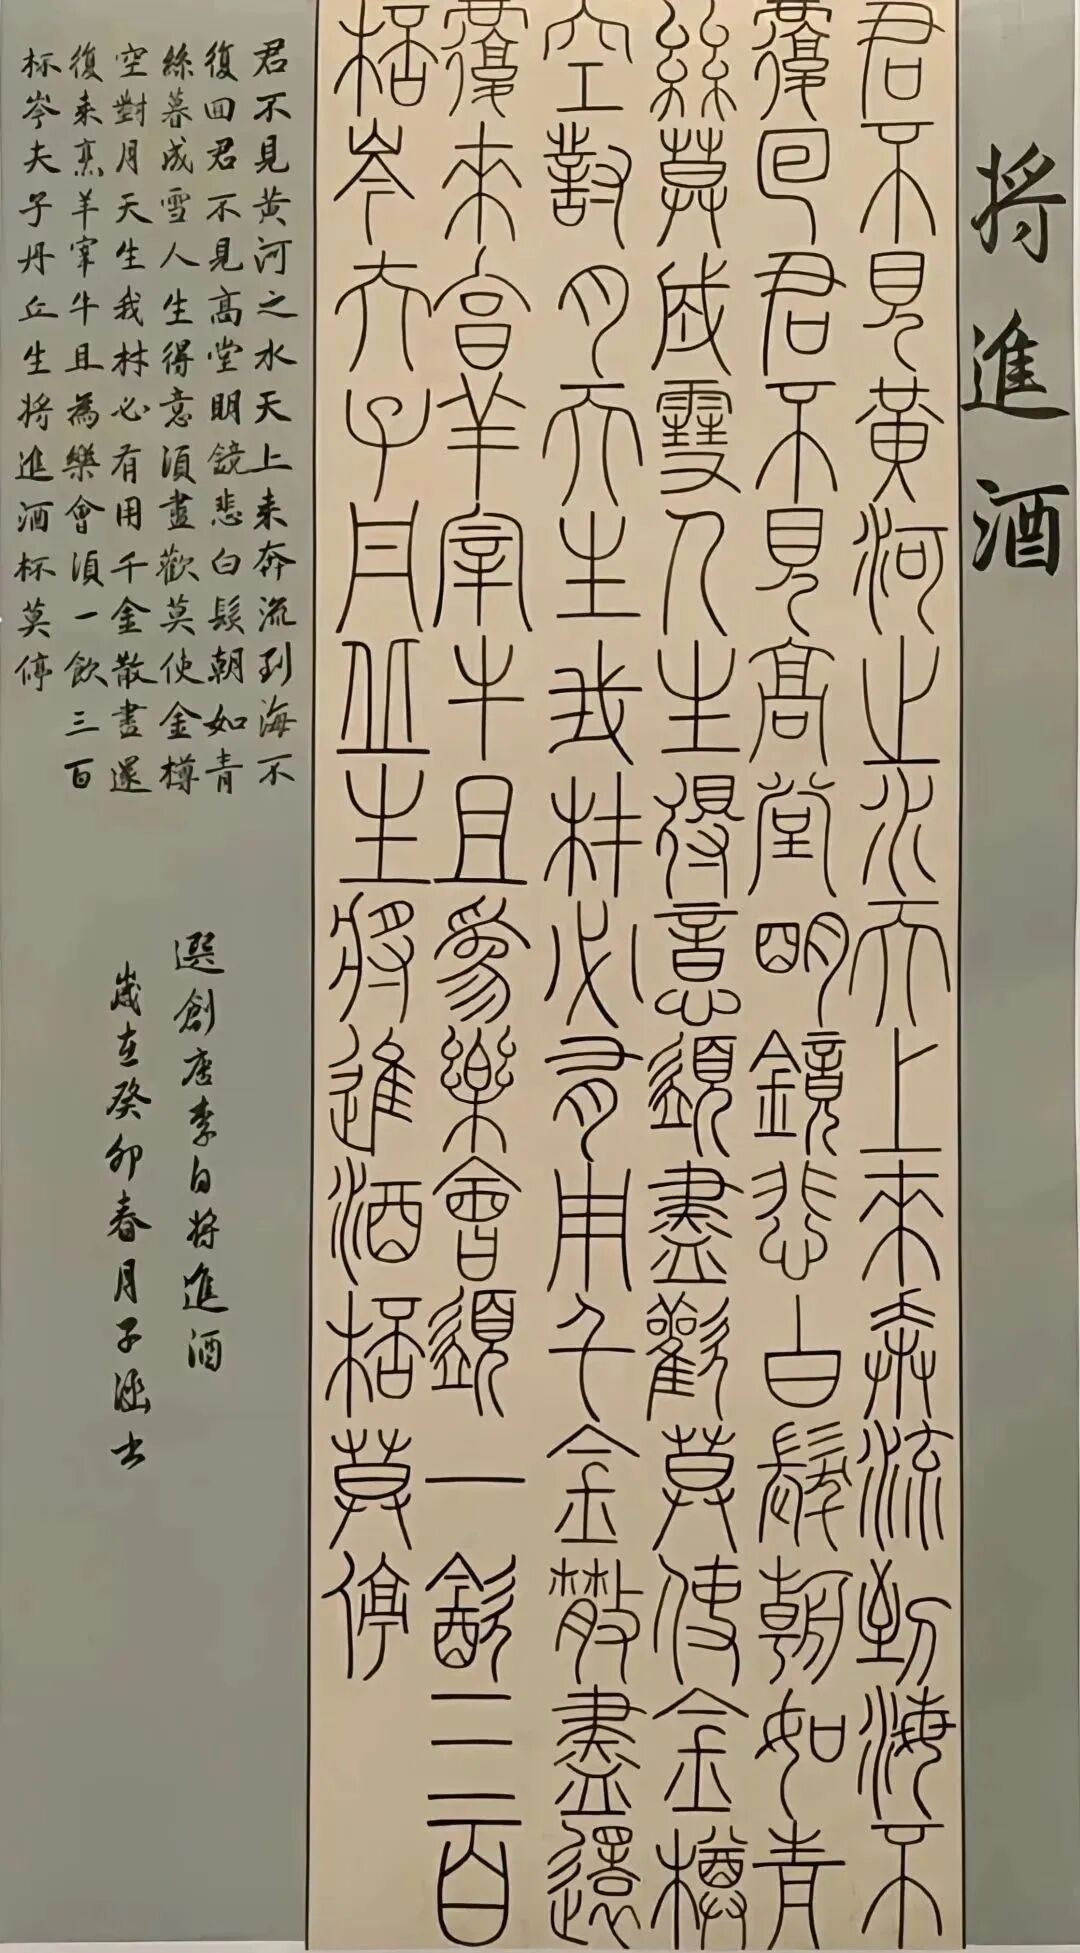 将進酒
君不見黃河之水天上來奔流到海不
復回君不見高堂明鏡悲白髮朝如青
絲莫成雪人生得意須盡歡莫使金樽
空對月天生我材必有用千金散盡還
復來亯羊宰牛且為樂會須一飲三百
桮岑夫子丹丘生將進酒桮莫停
君不見黃河之水天上来奔流到海不
復回君不見高堂明鏡悲白髮朝如青
絲暮成雪人生得意須盡歡莫使金樽
空對月天生我材必有用千金散盡還
復来烹羊宰牛且為樂會須一飲三百
杯岑夫子丹丘生将進酒杯莫停
選創唐李白将進酒
歲在癸卯春月子涵书